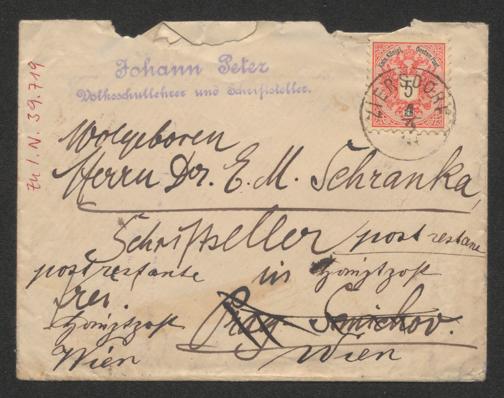 Johann Peter
Volksschullehrer und Schriftsteller.
Zu I.N. 39.719
ZIERSDORF
5
4
Wolgeboren
Herrn Dr. E. M. Schranka,
Schriftsteller post restante
post restante in Hauptpost
frei. Prag-Smichov.
Hauptpost Wien
Wien